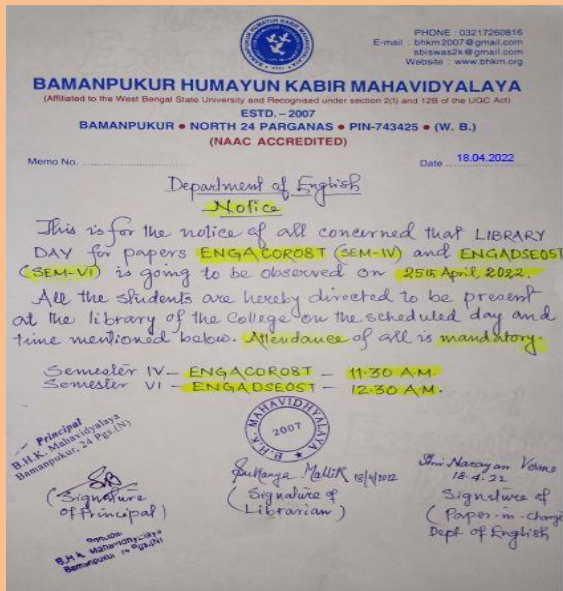 PHONE : 03217260816
E-mail : bhkm2007@gmail.com
sbiswas2k@gmail.com
Website : www.bhkm.org
BAMANPUKUR HUMAYUN KABIR MAHAVIDYALAYA
(Affiliated to the West Bengal State University and Recognised under section 2(f) and 12B of the UGC Act)
ESTD. – 2007
BAMANPUKUR ● NORTH 24 PARGANAS ● PIN-743425 ● (W. B.)
(NAAC ACCREDITED)
Memo No. ........................... Date 18.04.2022
Department of English
Notice
This is for the notice of all concerned that LIBRARY
DAY for papers ENGACOR08T (SEM-IV) and ENGADSE05T
(SEM-VI) is going to be observed on 25th April, 2022.
All the students are hereby directed to be present
at the library of the College on the scheduled day and
time mentioned below. Attendance of all is mandatory.
Semester IV – ENGACOR08T – 11.30 A.M.
Semester VI – ENGADSE05T – 12.30 A.M.
Principal
B.H.K. Mahavidyalaya
Bamanpukur, 24 Pgs.(N)
B.H.K. MAHAVIDHYALAYA
2007
Sukanya Mallik 18/4/2022
(Signature of
Librarian)
Narayan
18.4.22
Signature of
(Paper-in-charge
Dept of English
(Signature
of Principal)
B.H.K. Mahavidhyalaya
Bamanpukur Pgs.(N)